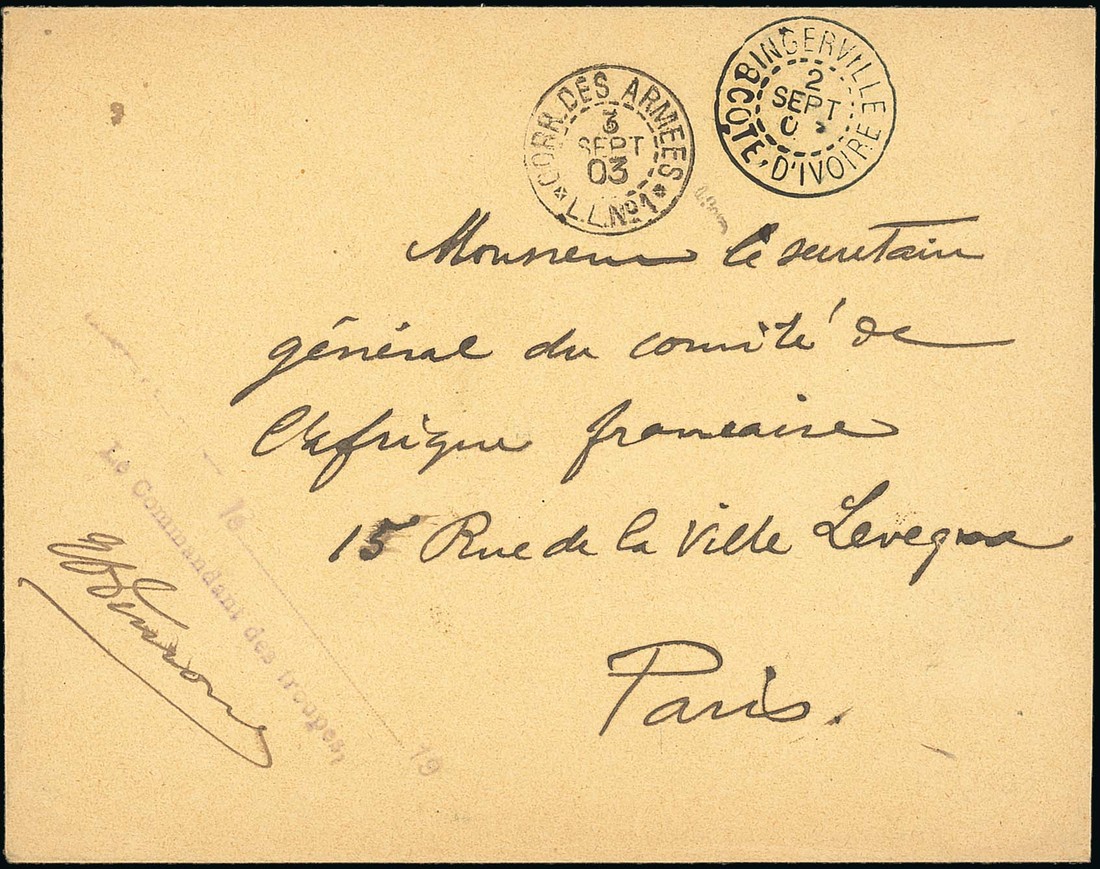 BINGERVILLE
2
SEPT
0
CÔTE, D'IVOIRE
*CORR. DES ARMEES*
3
SEPT
03
L.L.Nº1
Monsieur le secretaire
général du comité de
l'afrique francaise
15 Rue de la Ville Leveque
Paris.
le 19
Le Commandant des troupes,